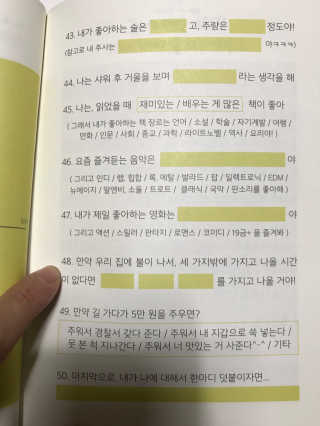 43. 내가 좋아하는 술은 고, 주량은 정도야!
(참고로 내 주사는 야ㅋㅋㅋ)
44. 나는 샤워 후 거울을 보며 라는 생각을 해
45. 나는, 읽었을 때 재미있는 / 배우는 게 많은 책이 좋아
( 그래서 내가 좋아하는 책 장르는 언어 / 소설 / 학술 / 자기계발 / 여행 /
만화 / 인문 / 사회 / 종교 / 과학 / 라이트노벨 / 역사 / 요리야! )
46. 요즘 즐겨듣는 음악은 야
( 그리고 인디 / 랩, 힙합 / 록, 메탈 / 발라드 / 팝 / 일렉트로닉 / EDM /
뉴에이지 / 알앤비, 소울 / 트로트 / 클래식 / 국악 / 판소리를 좋아해 )
47. 내가 제일 좋아하는 영화는 야
( 그리고 액션 / 스릴러 / 판타지 / 로맨스 / 코미디 / 19금+ 을 즐겨봐 )
48. 만약 우리 집에 불이 나서, 세 가지밖에 가지고 나올 시간
이 없다면 를 가지고 나올 거야!
49. 만약 길 가다가 5만 원을 주우면?
주워서 경찰서 갖다 준다 / 주워서 내 지갑으로 쏙 넣는다 /
못 본 척 지나간다 / 주워서 너 맛있는 거 사준다^-^ / 기타
50. 마지막으로, 내가 나에 대해서 한마디 덧붙이자면...